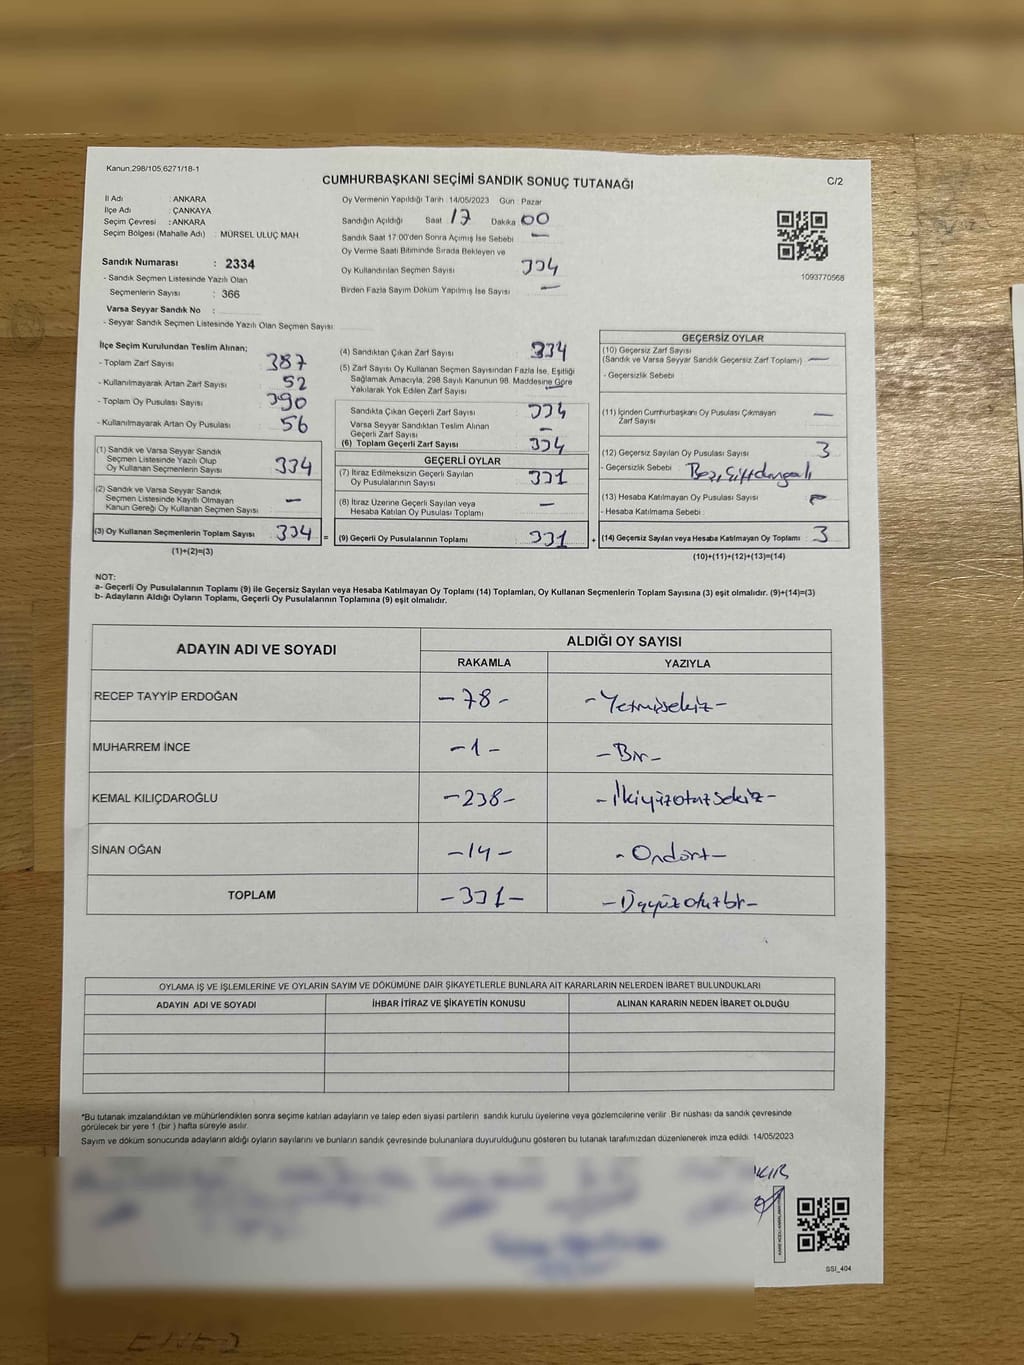 Kanun.298/105,6271/18-1
CUMHURBAŞKANI SEÇİMİ SANDIK SONUÇ TUTANAĞI
C/2
İl Adı : ANKARA
İlçe Adı : ÇANKAYA
Seçim Çevresi : ANKARA
Seçim Bölgesi (Mahalle Adı) : MÜRSEL ULUÇ MAH.
Sandık Numarası : 2334
- Sandık Seçmen Listesinde Yazılı Olan
Seçmenlerin Sayısı : 366
Varsa Seyyar Sandık No :
- Seyyar Sandık Seçmen Listesinde Yazılı Olan Seçmen Sayısı:
Oy Vermenin Yapıldığı Tarih 14/05/2023 Gün : Pazar
Sandığın Açıldığı Saat 17 Dakika 00
Sandık Saat 17:00'den Sonra Açımış İse Sebebi —
Oy Verme Saati Bitiminde Sırada Bekleyen ve
Oy Kullandırılan Seçmen Sayısı 334
Birden Fazla Sayım Döküm Yapılmış İse Sayısı —
1093770568
İlçe Seçim Kurulundan Teslim Alınan;
- Toplam Zarf Sayısı : 387
- Kullanılmayarak Artan Zarf Sayısı : 52
- Toplam Oy Pusulası Sayısı : 390
- Kullanılmayarak Artan Oy Pusulası : 56
(1) Sandık ve Varsa Seyyar Sandık
Seçmen Listesinde Yazılı Olup
Oy Kullanan Seçmenlerin Sayısı : 334
(2) Sandık ve Varsa Seyyar Sandık
Seçmen Listesinde Kayıtlı Olmayan
Kanun Gereği Oy Kullanan Seçmen Sayısı : —
(3) Oy Kullanan Seçmenlerin Toplam Sayısı : 334 =
(1)+(2)=(3)
(4) Sandıktan Çıkan Zarf Sayısı : 334
(5) Zarf Sayısı Oy Kullanan Seçmen Sayısından Fazla İse, Eşitliği
Sağlamak Amacıyla, 298 Sayılı Kanunun 98. Maddesine Göre
Yakılarak Yok Edilen Zarf Sayısı : —
Sandıkta Çıkan Geçerli Zarf Sayısı : 334
Varsa Seyyar Sandıktan Teslim Alınan
Geçerli Zarf Sayısı : —
(6) Toplam Geçerli Zarf Sayısı : 334
GEÇERLİ OYLAR
(7) İtiraz Edilmeksizin Geçerli Sayılan
Oy Pusulalarının Sayısı : 331
(8) İtiraz Üzerine Geçerli Sayılan veya
Hesaba Katılan Oy Pusulası Toplamı : —
(9) Geçerli Oy Pusulalarının Toplamı : 331 +
GEÇERSİZ OYLAR
(10) Geçersiz Zarf Sayısı
(Sandık ve Varsa Seyyar Sandık Geçersiz Zarf Toplamı) : —
- Geçersizlik Sebebi :
(11) İçinden Cumhurbaşkanı Oy Pusulası Çıkmayan
Zarf Sayısı : —
(12) Geçersiz Sayılan Oy Pusulası Sayısı : 3
- Geçersizlik Sebebi :
(13) Hesaba Katılmayan Oy Pusulası Sayısı : —
- Hesaba Katılmama Sebebi :
(14) Geçersiz Sayılan veya Hesaba Katılmayan Oy Toplamı : 3
(10)+(11)+(12)+(13)=(14)
NOT:
a- Geçerli Oy Pusulalarının Toplamı (9) ile Geçersiz Sayılan veya Hesaba Katılmayan Oy Toplamı (14) Toplamları, Oy Kullanan Seçmenlerin Toplam Sayısına (3) eşit olmalıdır. (9)+(14)=(3)
b- Adayların Aldığı Oyların Toplamı, Geçerli Oy Pusulalarının Toplamına (9) eşit olmalıdır.
ADAYIN ADI VE SOYADI
ALDIĞI OY SAYISI
RAKAMLA YAZIYLA
RECEP TAYYİP ERDOĞAN -78- -Yetmişsekiz-
MUHARREM İNCE -1- -Bir-
KEMAL KILIÇDAROĞLU -238- -İkiyüzotuzsekiz-
SİNAN OĞAN -14- -Ondört-
TOPLAM -331- -Üçyüzotuzbir-
OYLAMA İŞ VE İŞLEMLERİNE VE OYLARIN SAYIM VE DÖKÜMÜNE DAİR ŞİKAYETLERLE BUNLARA AİT KARARLARIN NELERDEN İBARET BULUNDUKLARI
ADAYIN ADI VE SOYADI İHBAR İTİRAZ VE ŞİKAYETİN KONUSU ALINAN KARARIN NEDEN İBARET OLDUĞU
*Bu tutanak imzalandıktan ve mühürlendikten sonra seçime katılan adayların ve talep eden siyasi partilerin sandık kurulu üyelerine veya gözlemcilerine verilir. Bir nüshası da sandık çevresinde
görülecek bir yere 1 (bir) hafta süreyle asılır.
Sayım ve döküm sonucunda adayların aldığı oyların sayılarını ve bunların sandık çevresinde bulunanlara duyurulduğunu gösteren bu tutanak tarafımızdan düzenlenerek imza edildi. 14/05/2023
SSI_404